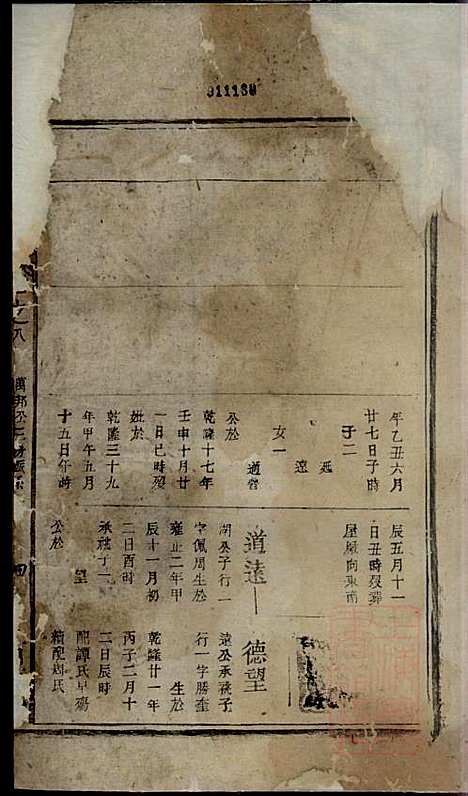 011180
年乙丑六月
廿七日子時
子二
延
遠
女一
適曾
公於
乾隆十七年
壬申十月廿
一日巳時歿
妣於
乾隆三十九
年甲午五月
十五日午時
辰五月十一
日丑時歿葬
屋廠向東南
道遠
湖公子行一
字佩周生於
雍正二年甲
辰十一月初
二日酉時
承祧子一
望
公於
德望
遠公承祧子
行一字勝奎
生於
乾隆廿一年
丙子二月十
二日辰時
配譚氏早殤
續配周氏
之八
萬邦公
四